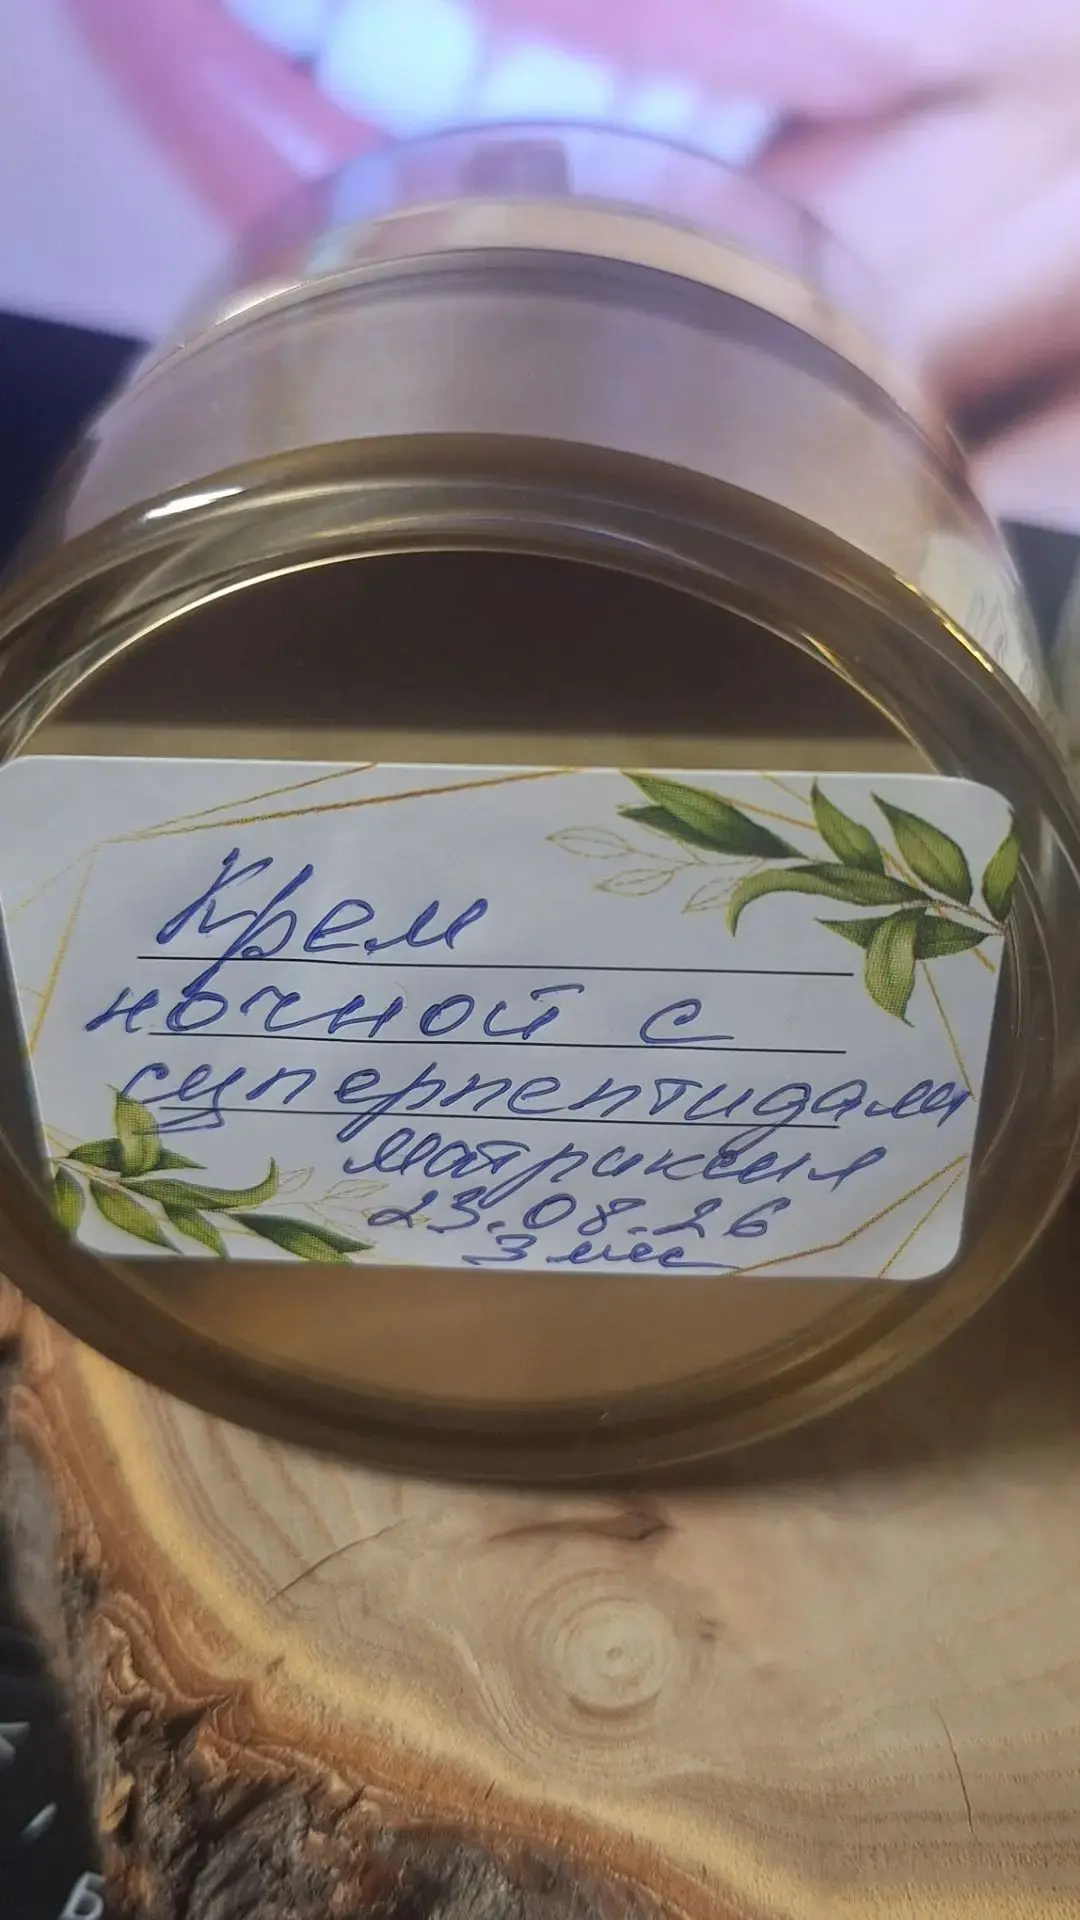 Крем
ночной с
суперпептидами
матриксил
23.08.26
3 мес
К
Б